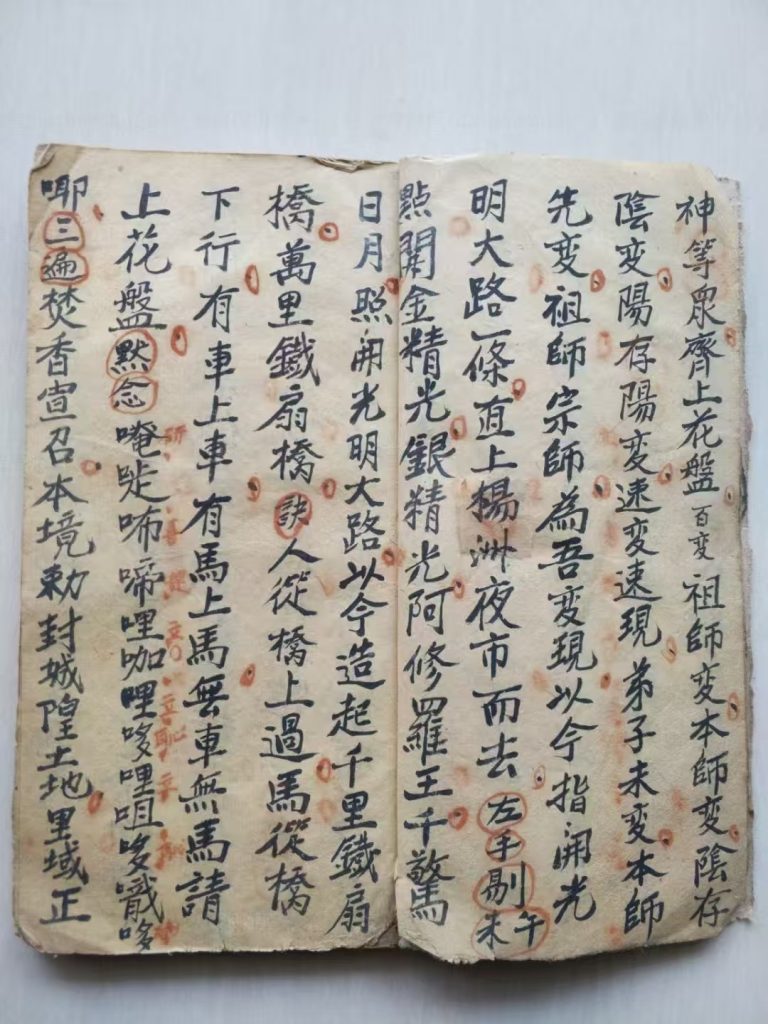 神等眾齊上花盤百变祖師变本師变陰存
陰变陽存陽变速变速現弟子未变本師
先变祖師宗師為吾变現以今指開光
明大路一條直上楊洲夜市而去左手剔午未
點開金精光銀精光阿修羅王千驚
日月照開光明大路以今造起千里鐵扇
橋萬里鐵扇橋訣人從橋上過馬從橋
下行有車上車有馬上馬無車無馬請
上花盤默念唵哫咘啼哩咖哩哆哩咀哆囈哆
唧三遍焚香宣召本境勅封城隍土地里域正